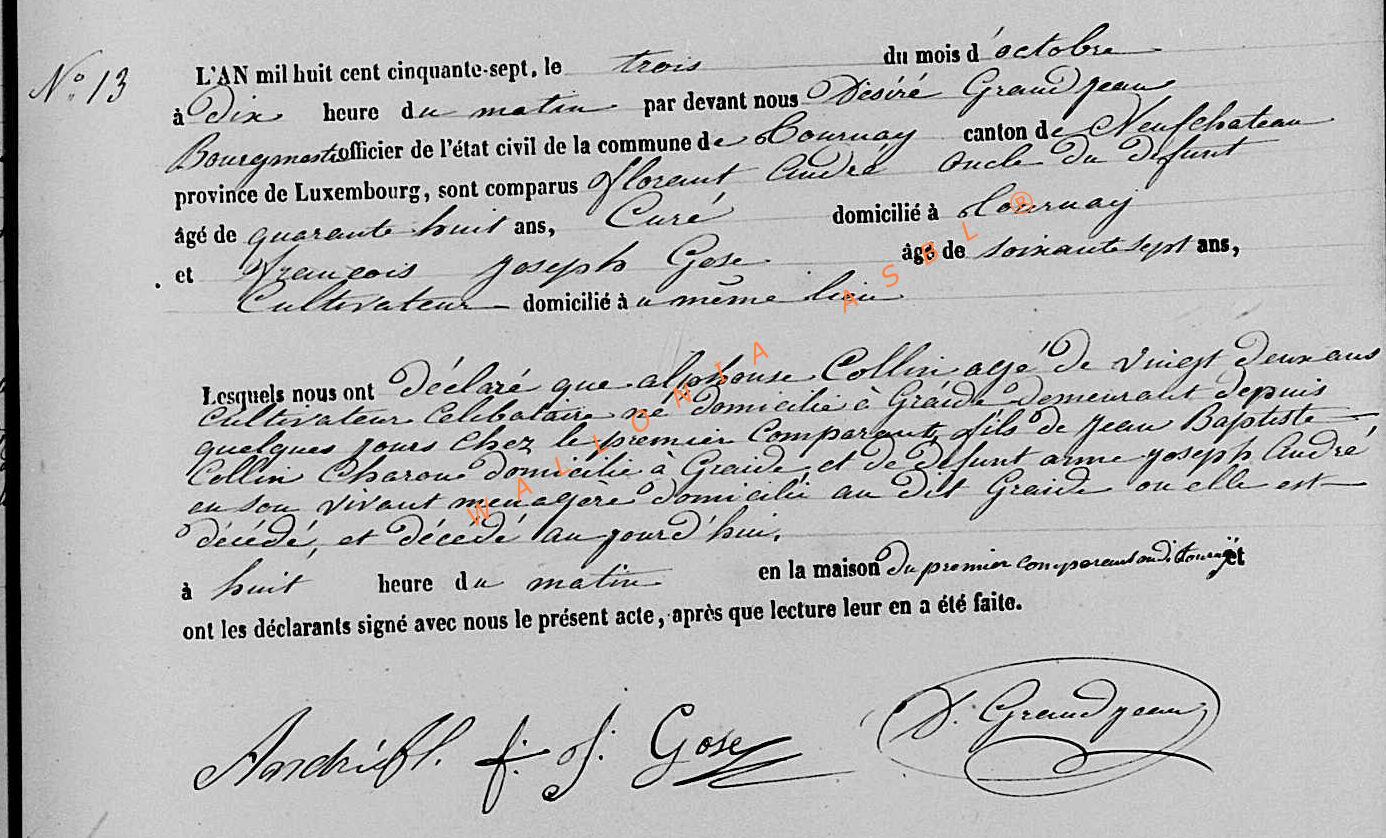 N° 13
L'AN mil huit cent cinquante-sept, le trois du mois d'octobre
à Dix heure du matin par devant nous Désiré Grandjean
Bourgmestre officier de l'état civil de la commune de Tournay canton de Neufchateau
province de Luxembourg, sont comparus florent André oncle du défunt
âgé de quarante huit ans, Curé domicilié à Tournay
et françois joseph Gose âgé de soixante sept ans,
Cultivateur domicilié au même lieu
Lesquels nous ont déclaré que alphonse Collin agé de vingt deux ans
cultivateur celibataire né domicilié à Graide demeurant depuis
quelques jours chez le premier comparant, fils de jean Baptiste
Collin Charon domicilié à Graide, et de defunt anne joseph André
en son vivant menagère domicilié au dit Graide ou elle est
décédé, et décédé au jourd'hui,
à huit heure du matin en la maison du premier comparant audit Tournay et
ont les déclarants signé avec nous le présent acte, après que lecture leur en a été faite.
André fl. f. J. Gose D. Grandjean
WALLONIA ASBL ®